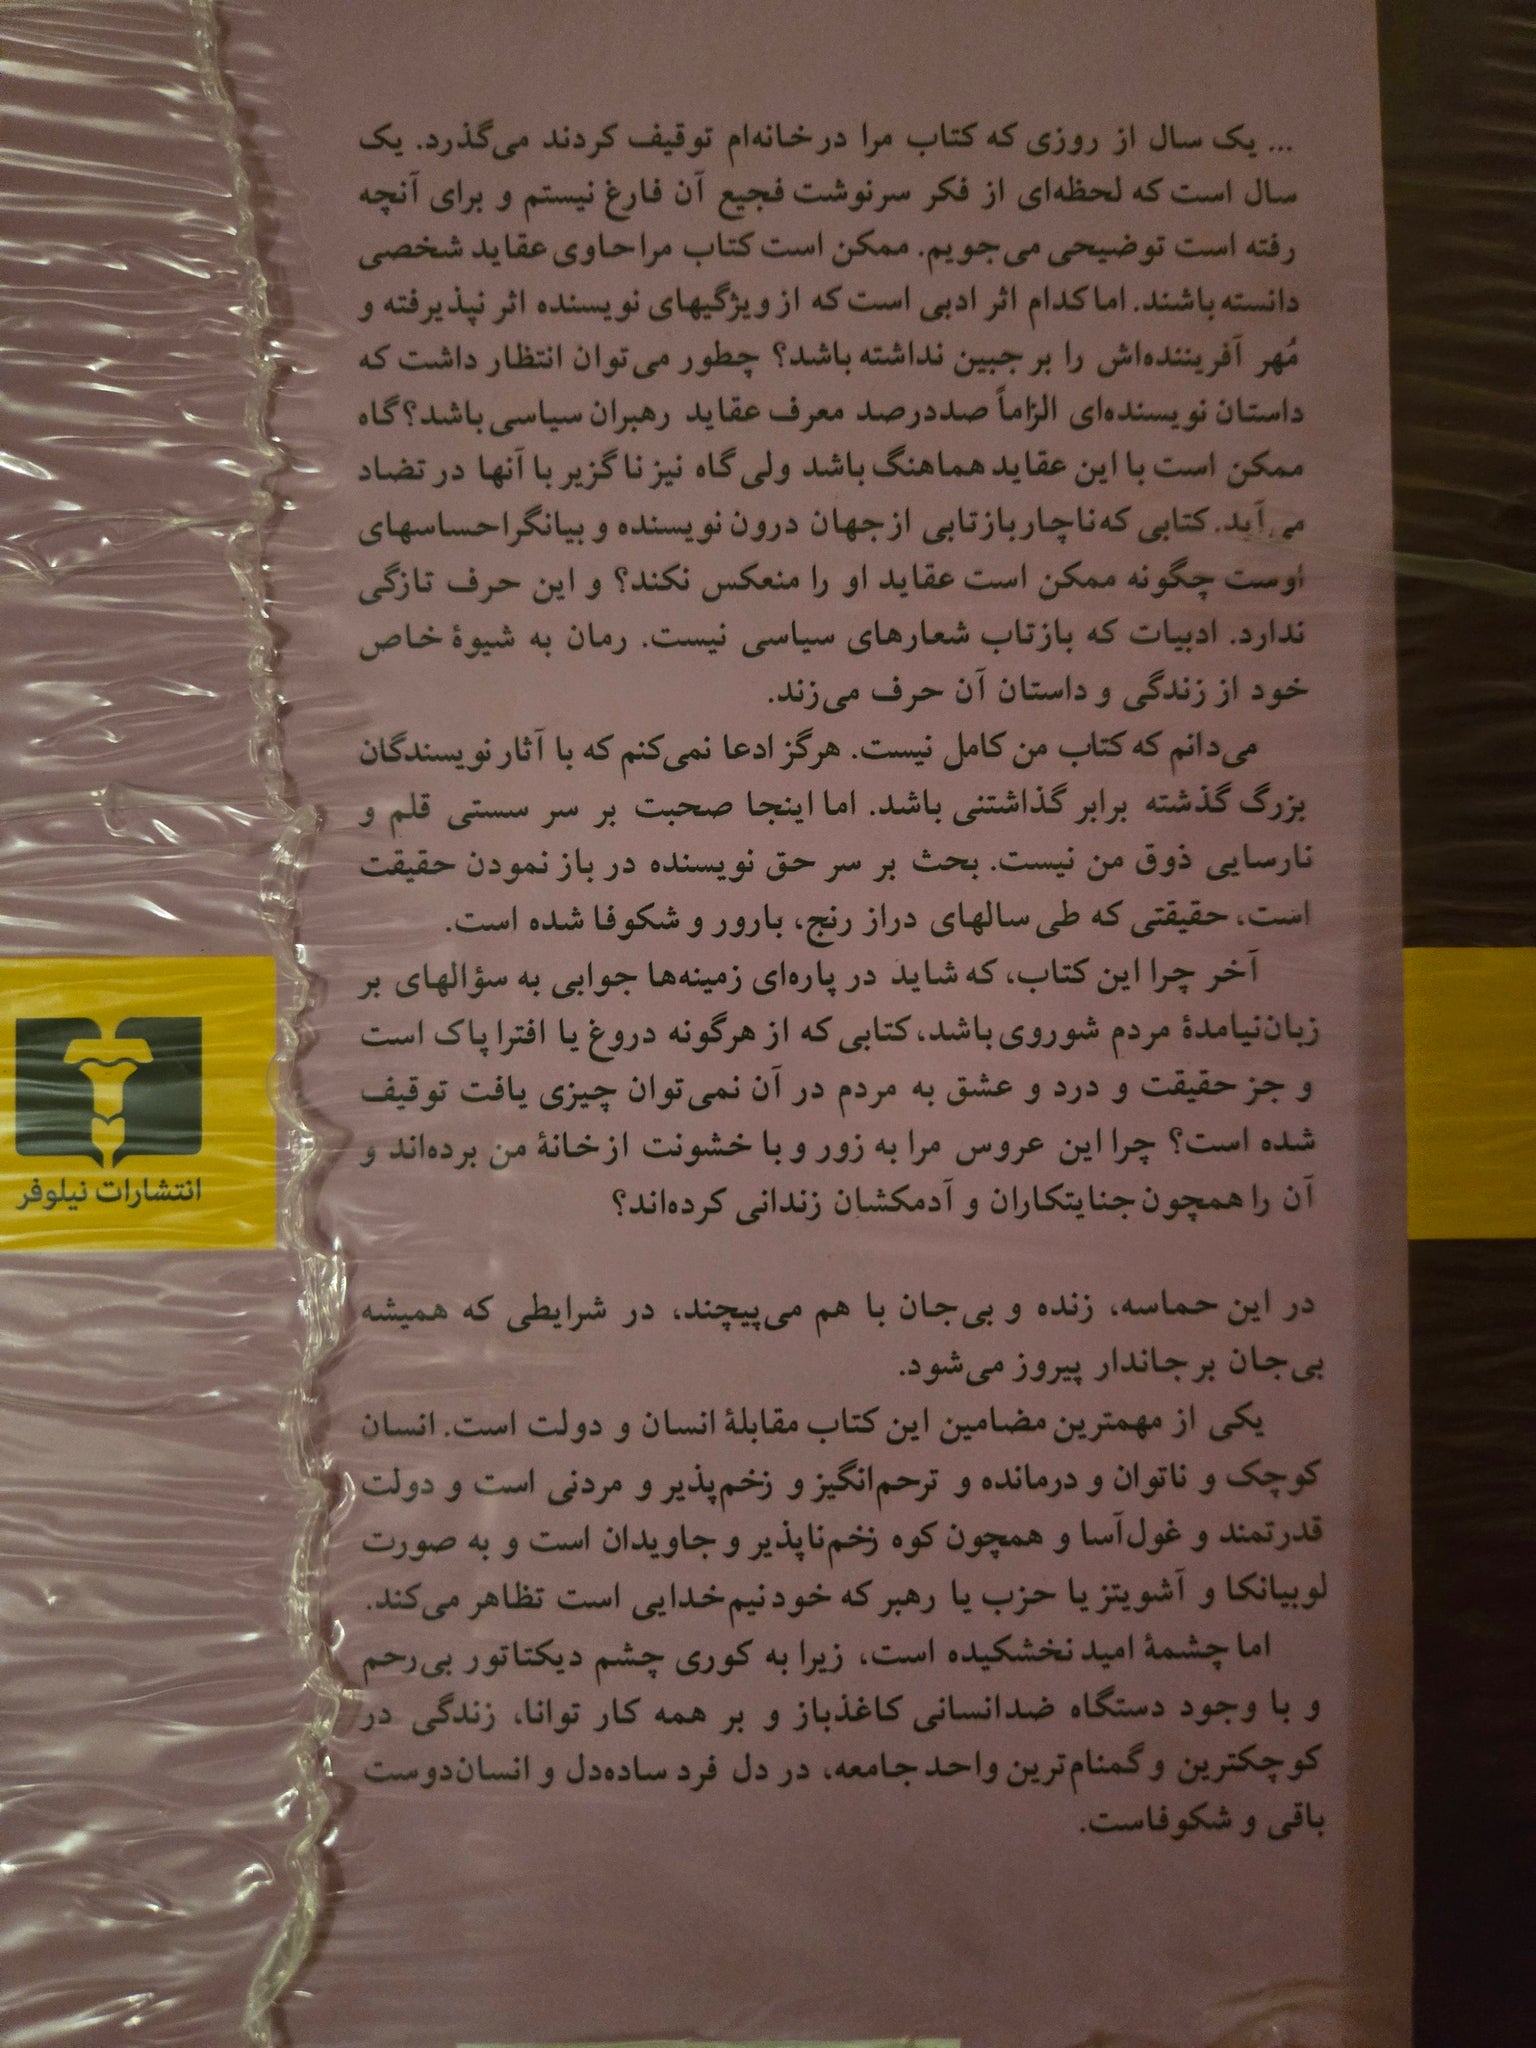 ... یک سال از روزی که کتاب مرا در خانه‌ام توقیف کردند می‌گذرد. یک
سال است که لحظه‌ای از فکر سرنوشت فجیع آن فارغ نیستم و برای آنچه
رفته است توضیحی می‌جویم. ممکن است کتاب مرا حاوی عقاید شخصی
دانسته باشند. اما کدام اثر ادبی است که از ویژگیهای نویسنده اثر نپذیرفته و
مُهر آفریننده‌اش را بر جبین نداشته باشد؟ چطور می‌توان انتظار داشت که
داستان نویسنده‌ای الزاماً صددرصد معرف عقاید رهبران سیاسی باشد؟ گاه
ممکن است با این عقاید هماهنگ باشد ولی گاه نیز ناگزیر با آنها در تضاد
می‌آید. کتابی که ناچار بازتابی از جهان درون نویسنده و بیانگر احساسهای
اوست چگونه ممکن است عقاید او را منعکس نکند؟ و این حرف تازگی
ندارد. ادبیات که بازتاب شعارهای سیاسی نیست. رمان به شیوۀ خاص
خود از زندگی و داستان آن حرف می‌زند.
می‌دانم که کتاب من کامل نیست. هرگز ادعا نمی‌کنم که با آثار نویسندگان
بزرگ گذشته برابر گذاشتنی باشد. اما اینجا صحبت بر سر سستی قلم و
نارسایی ذوق من نیست. بحث بر سر حق نویسنده در باز نمودن حقیقت
است، حقیقتی که طی سالهای دراز رنج، بارور و شکوفا شده است.
آخر چرا این کتاب، که شاید در پاره‌ای زمینه‌ها جوابی به سؤالهای بر
زبان‌نیامدۀ مردم شوروی باشد، کتابی که از هرگونه دروغ یا افترا پاک است
و جز حقیقت و درد و عشق به مردم در آن نمی‌توان چیزی یافت توقیف
شده است؟ چرا این عروس مرا به زور و با خشونت از خانۀ من برده‌اند و
آن را همچون جنایتکاران و آدمکشان زندانی کرده‌اند؟
در این حماسه، زنده و بی‌جان با هم می‌پیچند، در شرایطی که همیشه
بی‌جان بر جاندار پیروز می‌شود.
یکی از مهمترین مضامین این کتاب مقابلۀ انسان و دولت است. انسان
کوچک و ناتوان و درمانده و ترحم‌انگیز و زخم‌پذیر و مردنی است و دولت
قدرتمند و غول‌آسا و همچون کوه زخم‌ناپذیر و جاویدان است و به صورت
لوبیانکا و آشویتز یا حزب یا رهبر که خود نیم‌خدایی است تظاهر می‌کند.
اما چشمۀ امید نخشکیده است، زیرا به کوری چشم دیکتاتور بی‌رحم
و با وجود دستگاه ضدانسانی کاغذباز و بر همه کار توانا، زندگی در
کوچکترین و گمنام‌ترین واحد جامعه، در دل فرد ساده‌دل و انسان‌دوست
باقی و شکوفاست.
انتشارات نیلوفر